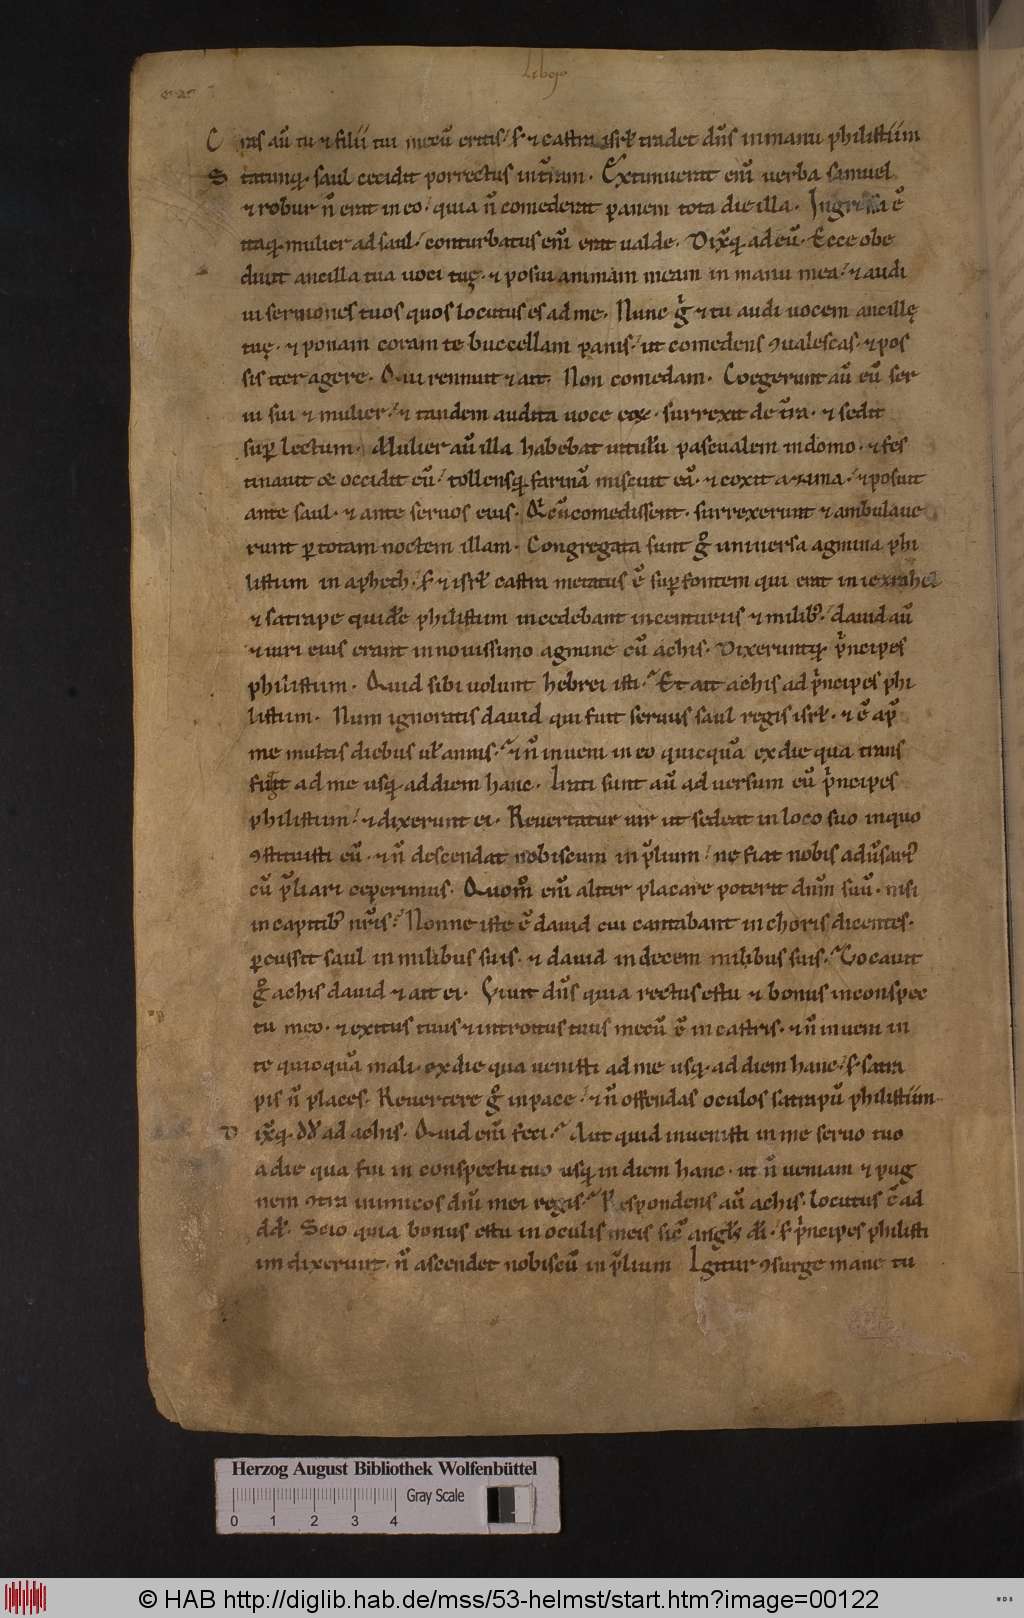 Cras aū tu ⁊ filii tui mecū eritis / s; ⁊ castra isrl̄ tradet dn̄s in manu philistiim
Statimq; saul cecidit porrectus in trām. Extimuerat enī verba samuel
⁊ robur n̄ erat in eo / quia n̄ comederat panem tota die illa. Ingressa ē
itaq; mulier ad saul / conturbatus enī erat ualde. Dix̄q; ad eū. Ecce obe
diuit ancilla tua uoci tuę. ⁊ posui animam meam in manu mea / ⁊ audi
ui sermones tuos quos locutus es ad me. Nunc g̊ ⁊ tu audi uocem ancillę
tuę. ⁊ ponam coram te buccellam panis / ut comedens ꝯualescas. ⁊ pos
sis iter agere. Qui rennuit ⁊ ait. Non comedam. Coegerunt aū eū ser
ui sui ⁊ mulier / ⁊ tandem audita uoce eoꝝ. surrexit de trā. ⁊ sedit
sup̱ lectum. Mulier aū illa habebat uitulū pascualem in domo. ⁊ fes
tinauit ⁊ occidit eū / tollensq; farinā miscuit eā. ⁊ coxit azima / ⁊ posuit
ante saul. ⁊ ante seruos eius. Qui cū comedissent. surrexerunt ⁊ ambulaue
runt ꝑ totam noctem illam. Congregata sunt g̊ uniuersa agmina phi
listium in aphech. s; ⁊ isrl̄ castra metatus ē sup̱ fontem qui erat in iezrahel
⁊ satrape quidē philistium incedebant in centuriis ⁊ milib; / dauid aū
⁊ uiri eius erant in nouissimo agmine cū achis. Dixeruntq; pⁱncipes
philistium. Quid sibi uolunt hebrei isti? Et ait achis ad pⁱncipes phi
listium. Num ignoratis dauid qui fuit seruus saul regis isrl̄. ⁊ ē apᷣ
me multis diebus ul̄ annis? ⁊ n̄ inueni in eo quicquā ex die qua trans
fugit ad me usq; ad diem hanc. Irati sunt aū aduersum eū pⁱncipes
philistium / ⁊ dixerunt ei. Reuertatur uir ut sedeat in loco suo in quo
ꝯstituisti eū. ⁊ n̄ descendat nobiscum in p̄lium / ne fiat nobis aduˀsariˀ
cū p̄liari ceperimus. Quom̊ enī aliter placare poterit dn̄m suū. nisi
in capitib; nr̄is? Nonne iste ē dauid cui cantabant in choris dicentes.
ꝑcussit saul in milibus suis. ⁊ dauid in decem milibus suis? Vocauit
g̊ achis dauid ⁊ ait ei. Viuit dn̄s quia rectus es tu ⁊ bonus in conspec
tu meo. ⁊ exitus tuus ⁊ introitus tuus mecū ē in castris. ⁊ n̄ inueni in
te quicquā mali. ex die qua uenisti ad me usq; ad diem hanc / s; satra
pis n̄ places. Reuertere g̊ in pace / ⁊ n̄ offendas oculos satrapū philistiim
Dix̄q; dd̄ ad achis. Quid enī feci? Aut quid inuenisti in me seruo tuo
a die qua fui in conspectu tuo usq; in diem hanc. ut n̄ ueniam ⁊ pug
nem ꝯtra inimicos dn̄i mei regis? Respondens aū achis. locutus ē ad
dd̄. Scio quia bonus es tu in oculis meis sic̄ angl̄s dī. s; pⁱncipes philisti
im dixerunt. n̄ ascendet nobiscū in p̄lium Igitur ꝯsurge mane tu
Herzog August Bibliothek Wolfenbüttel
Gray Scale
0 1 2 3 4
© HAB http://diglib.hab.de/mss/53-helmst/start.htm?image=00122